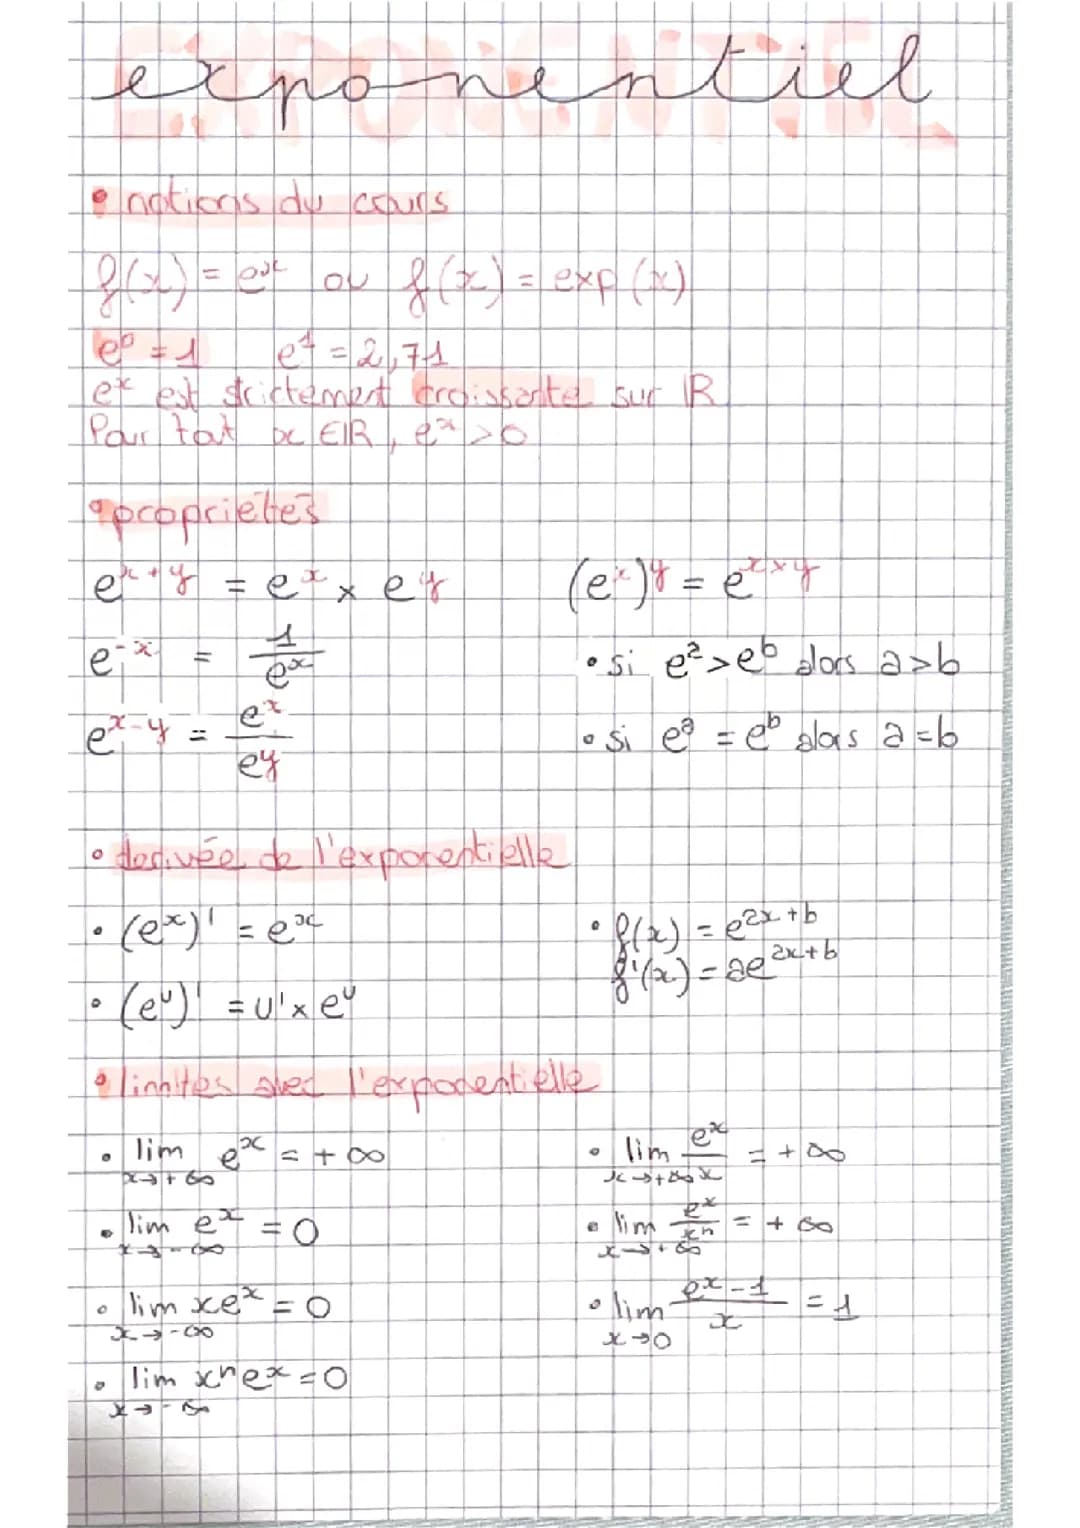 EXPONENTIEL
exponentiel
• notions du cours
f(x) = eˣ ou f(x) = exp(x)
e⁰ = 1 e¹ = 2,71
eˣ est strictement croissante sur ℝ
Pour tout x ∈ ℝ, eˣ > 0
• propriétés
eˣ⁺ʸ = eˣ × eʸ (eˣ)ʸ = eˣ˟ʸ
e⁻ˣ = 1/eˣ • si eᵃ > eᵇ alors a > b
eˣ⁻ʸ = eˣ/eʸ • si eᵃ = eᵇ alors a = b
• derivée de l'exponentielle
• (eˣ)' = eˣ • f(x) = eᵃˣ⁺ᵇ
f'(x) = aeᵃˣ⁺ᵇ
• (eᵘ)' = u' × eᵘ
• limites avec l'exponentielle
• lim x→+∞ eˣ = +∞ • lim x→+∞ eˣ/x = +∞
• lim x→-∞ eˣ = 0 • lim x→+∞ eˣ/xⁿ = +∞
• lim x→-∞ xeˣ = 0 • lim x→0 (eˣ-1)/x = 1
• lim x→-∞ xⁿeˣ = 0